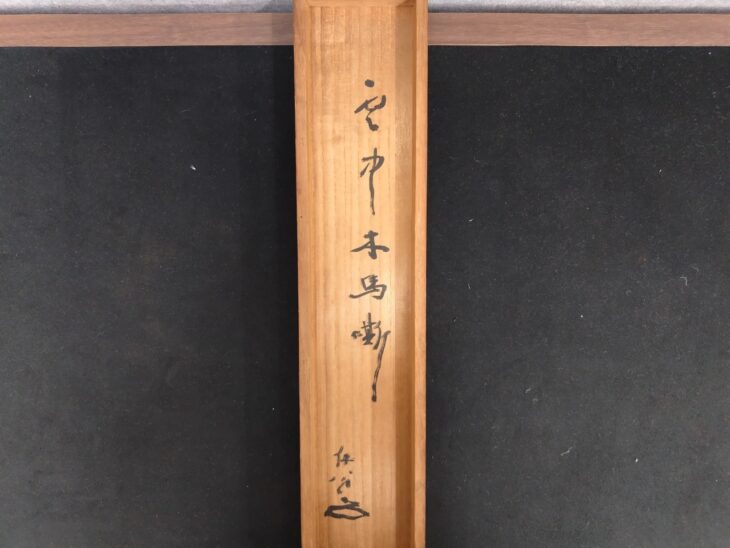 雲中木馬嘶